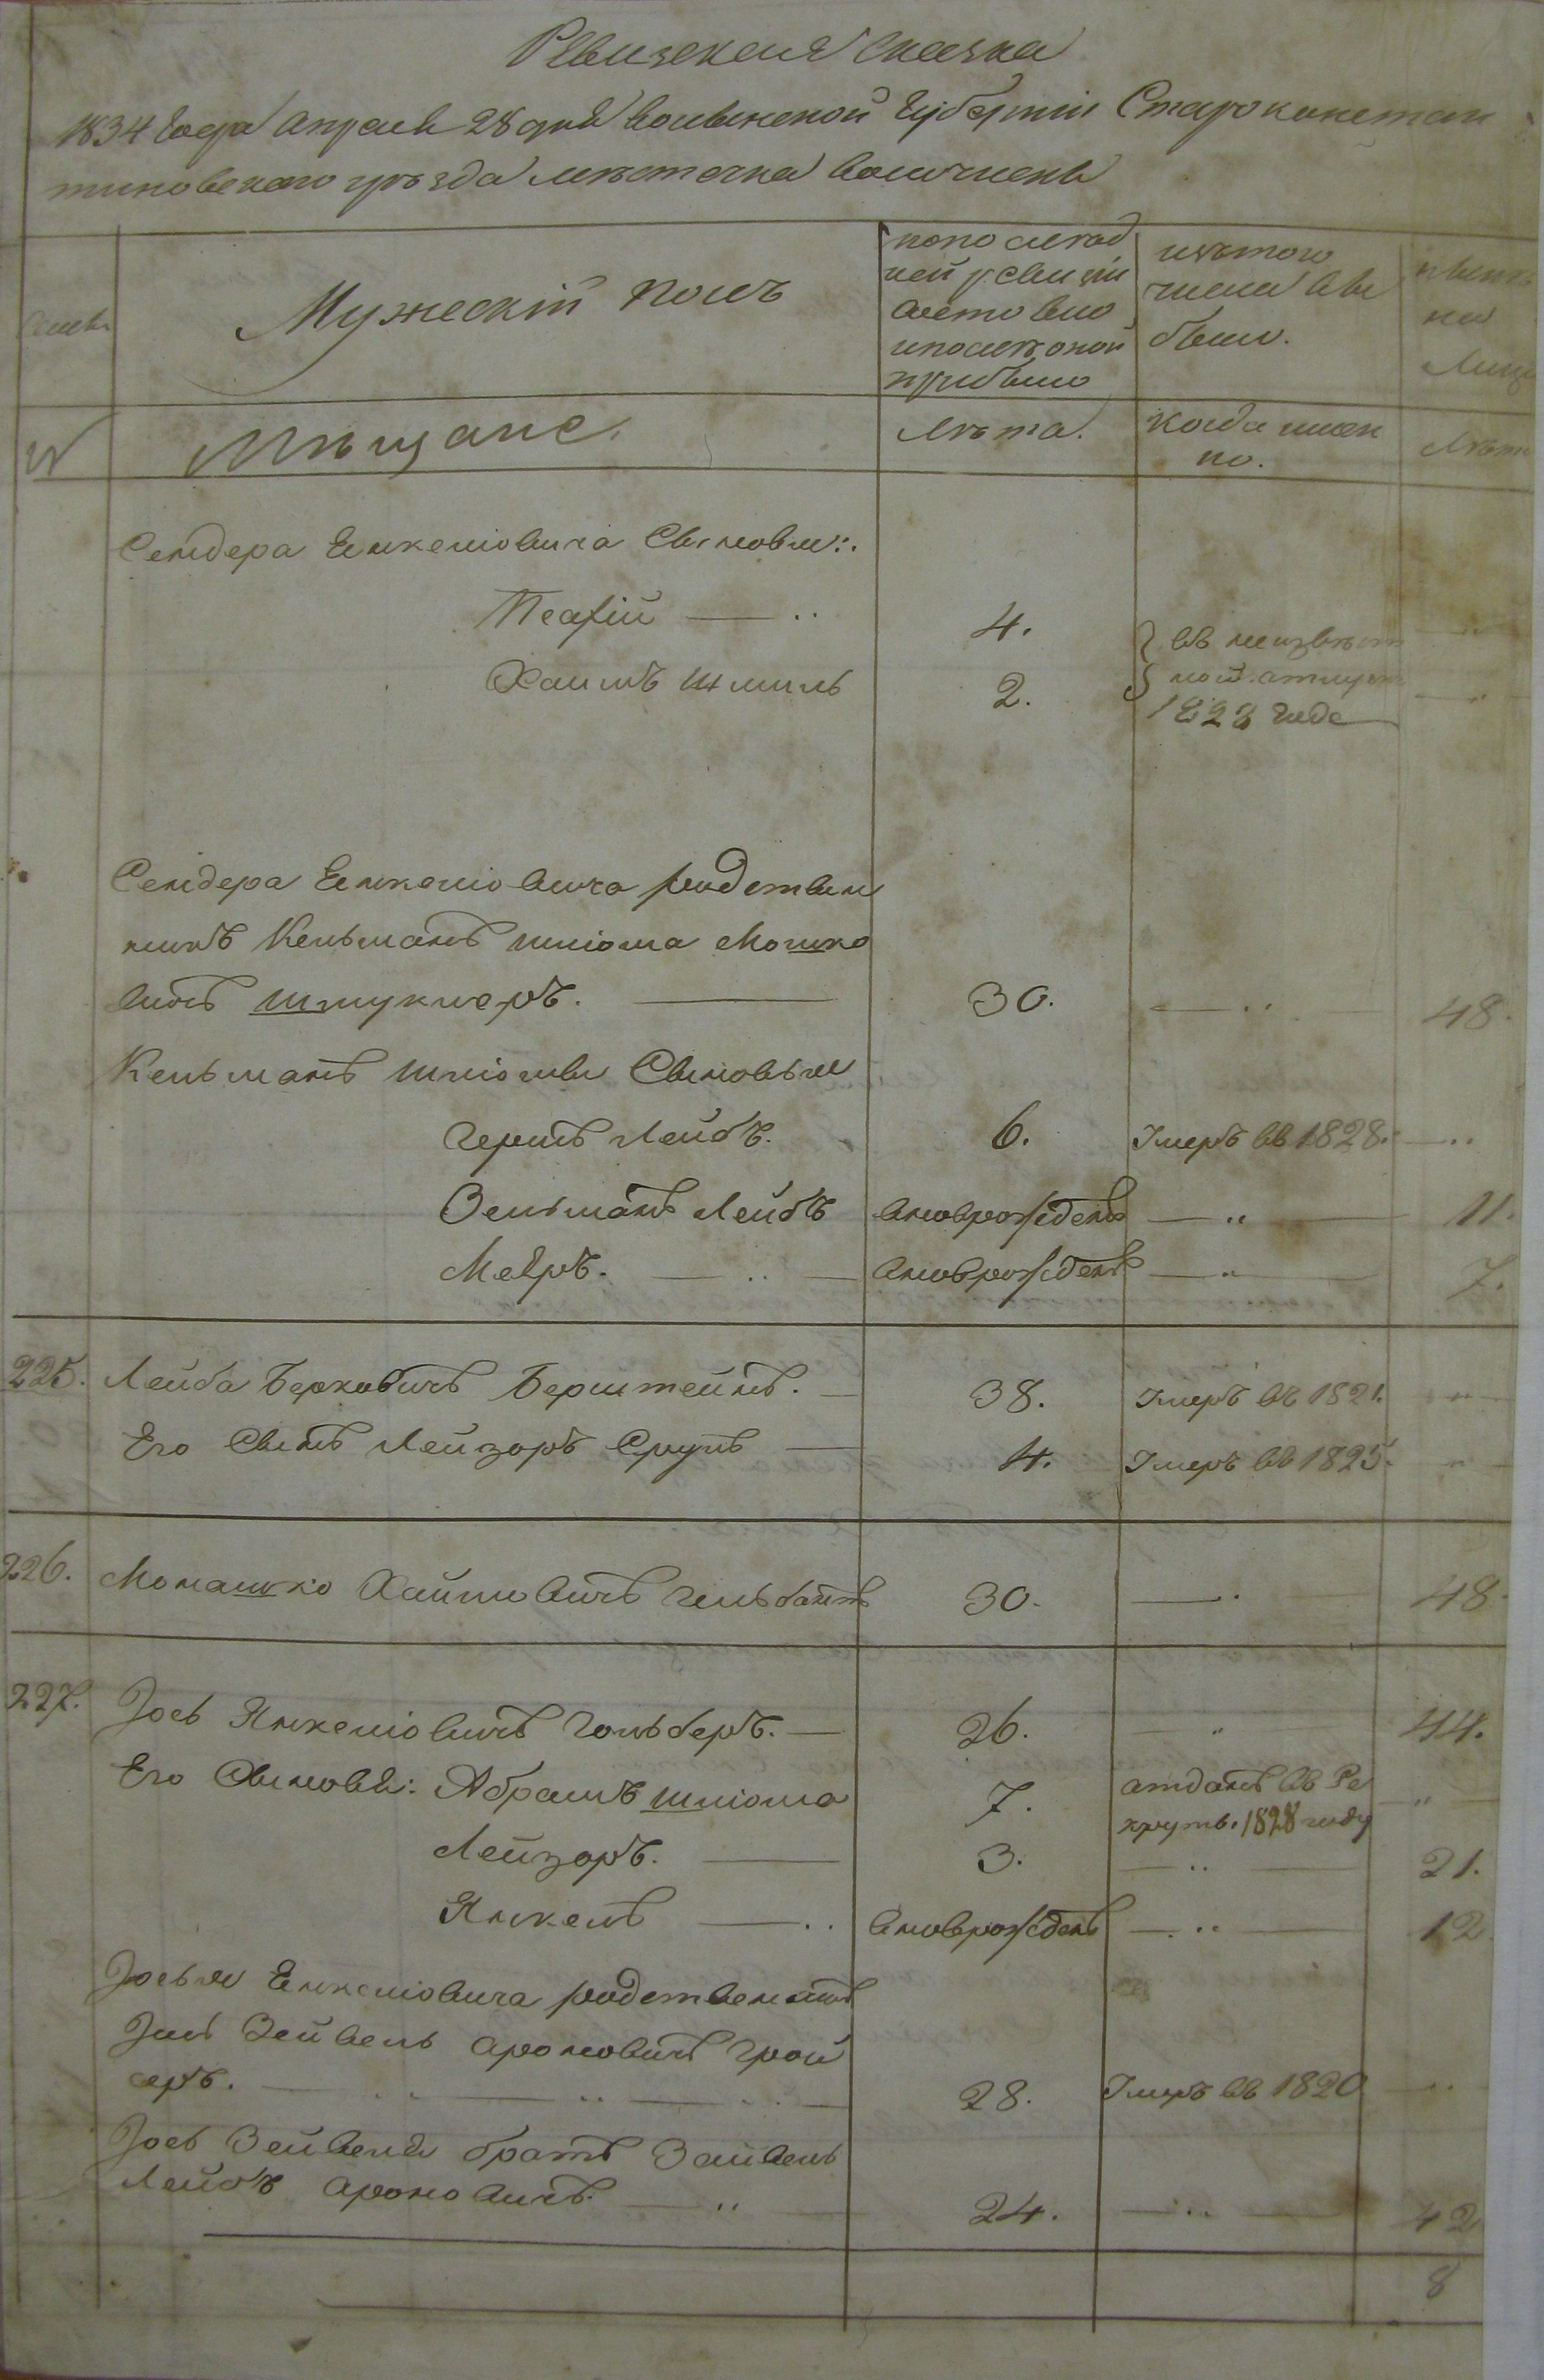 Ревизская Сказка
1834 года апреля 28 дня волынской Губернии Староконстан
тиновского уѣзда мѣстечка волочиска
Мужескій полъ
попослѣд
ней ревизіи
состояло
ипослѣ оной
прибыло
изътого
числа вы
было.
нынѣ
на
Лицо
№
Мѣщане.
лѣта.
когда имен
но.
Лѣта
Сендера Еnкеліовича Сыновьи:.
4.
въ неизвѣст
Хаимъ Шмиль
2.
ной отлучк
1828 года
Сендера Енкеліовича родствен
никъ Кельманъ шліома Мошко
вичъ штукмеръ.
30.
48.
Кельманъ шліомы Сыновья
Гершъ Лейбъ.
6.
Умеръ въ 1828.
Зельманъ Лейбъ
вновьрожденъ
11.
Мееръ.
вновьрожденъ
7.
225. Лейба Берковичъ Берштейнъ.
38.
Умеръ въ 1821.
Его Сынъ Лейзоръ Сруль
4.
Умеръ въ 1825.
226. Монашко Хаимовичъ Гельбантъ
30.
48.
227. Іось Янкеліовичъ Гольберъ.
26.
44.
Его Сыновья: Абрамъ шліома
7.
отданъ въ Ре
круты. 1828 году
Лейзоръ.
3.
21.
Янкель
вновьрожденъ
12
Іосья Енкеліовича родственникъ
Іось Зейвель ароновичъ Грой
серъ.
28.
Умеръ въ 1820
Іось Зейвеля братъ Зайвель
Лейбъ ароновичъ.
24.
42
8